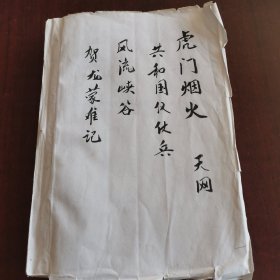 虎门烟火
天网
共和国仪仗兵
风流峡谷
贺龙蒙难记